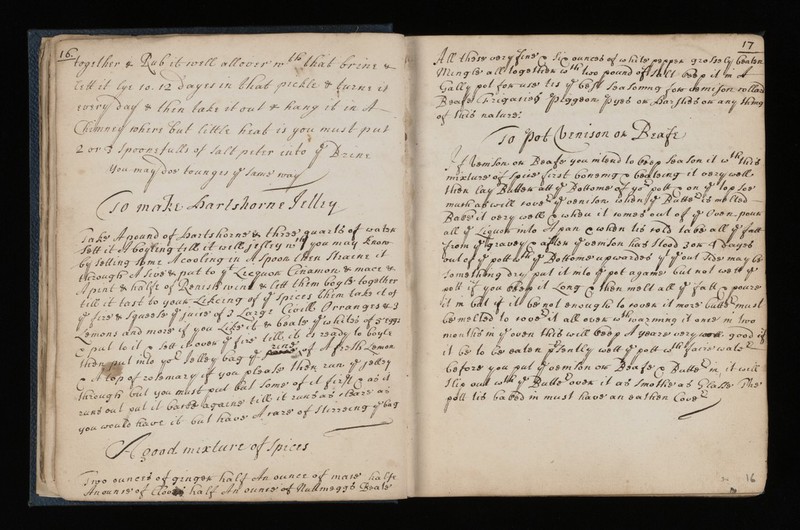 16.
together & Rub it well all over wth that brine &
lett it lye 10. 12 dayes in that pickle & turne it
every day & then take it out & hang it in A
Chimney where but little heat is you must put
2 or 3 spoonefulls of salt peter into ye Brine
You may doe tounges ye same way
To make Hartshorne Jelley
Take A pound of Hartshorne & three quarts of water
Sett it A boyling till it will Jelley wch you may know
by setting some A cooling in A spoon then straine it
through A sive & put to ye Liequor Cinamon & mace &
A pint & halfe of Renish wine & lett them boyle together
till it tast to your Likeing of ye spices then take it of
ye fire & squese ye juice of 2 Large Civill Orranges & 3
Lemons and more if you Like it & beate ye whites of 8 eggs
& put to it & sett it over ye fire till it is ready to boyle
then put into yor Jelley bag ye rine of A fresh Lemon
& A top of rosemary if you please then run ye Jelley
through but you must put but some of it first & as it
runs out put it back againe till it runs as cleare as
you would have it but have A care of stirreing ye bag
A good mixture of Spices
Two ounces of ginger half An ounce of mace halfe
An ounce of Cloves half An ounce of Nutmeggs Beate
17
All these very fine & six ounces of white pepper grosely beaten
Mingle all together wth two pound of salt keep it in A
Gally pot for use tis ye best seasoning for venison collard
Beafe Frigacies Piggeon Pyes or Harshes or any thing
of this nature.
To Pot Venison or Beafe
If venison or Beafe you intend to keep season it wth this
mixture of spice first boneing & beateing it very well
then lay Butter att ye Bottome of yor pott & on ye top soe
much as will cover ye venison when ye Butter is melted
Bake it very well & when it comes out of ye Oven pour
all ye Liquor into A pan & when tis cold take all ye fatt
from ye gravey & after ye venison has stood 3 or 4 dayes
out of ye pott wth ye Bottome upwardes yt ye out side may be
something dry put it into ye pot againe but not wett ye
pott if you keep it Long & then melt all ye fatt & poure
it in but if it be not enough to cover it more butter must
be melted to cover it all over wth warming it once in two
months in ye oven this will keep A yeare very good if
it be to be eaten presently wett ye pott wth faire water
before you put ye venison or Beafe & Butter in, it will
slip out wth ye Butter over it as smothe as Glass The
pott tis baked in must have an eathen Cover
16